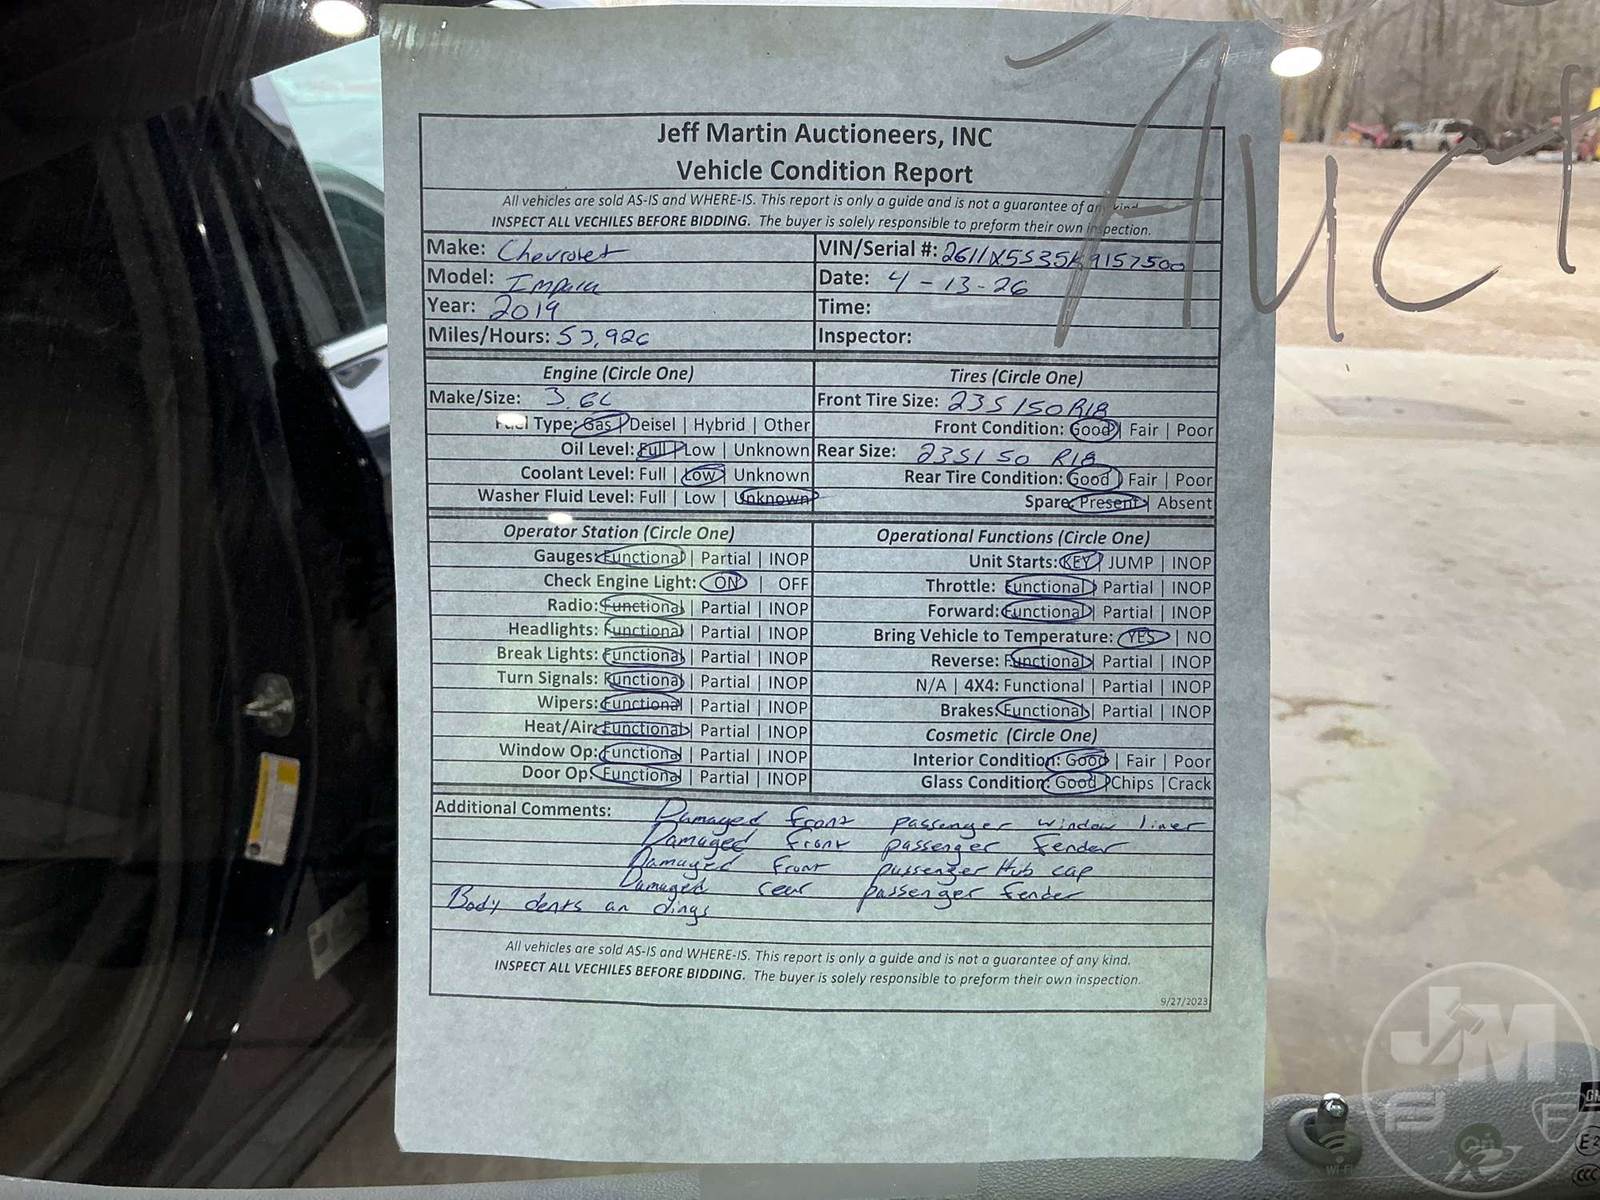 Auct
Jeff Martin Auctioneers, INC
Vehicle Condition Report
All vehicles are sold AS-IS and WHERE-IS. This report is only a guide and is not a guarantee of any kind.
INSPECT ALL VECHILES BEFORE BIDDING. The buyer is solely responsible to preform their own inspection.
Make: Chevrolet VIN/Serial #: 2G11X5S35K9157500
Model: Impala Date: 4-13-26
Year: 2019 Time:
Miles/Hours: 53,926 Inspector:
Engine (Circle One) Tires (Circle One)
Make/Size: 3.6L Front Tire Size: 235/50R18
Fuel Type: Gas | Deisel | Hybrid | Other Front Condition: Good | Fair | Poor
Oil Level: Full | Low | Unknown Rear Size: 235/50 R18
Coolant Level: Full | Low | Unknown Rear Tire Condition: Good | Fair | Poor
Washer Fluid Level: Full | Low | Unknown Spare: Present | Absent
Operator Station (Circle One) Operational Functions (Circle One)
Gauges: Functional | Partial | INOP Unit Starts: KEY | JUMP | INOP
Check Engine Light: ON | OFF Throttle: Functional | Partial | INOP
Radio: Functional | Partial | INOP Forward: Functional | Partial | INOP
Headlights: Functional | Partial | INOP Bring Vehicle to Temperature: YES | NO
Break Lights: Functional | Partial | INOP Reverse: Functional | Partial | INOP
Turn Signals: Functional | Partial | INOP N/A | 4X4: Functional | Partial | INOP
Wipers: Functional | Partial | INOP Brakes: Functional | Partial | INOP
Heat/Air: Functional | Partial | INOP Cosmetic (Circle One)
Window Op: Functional | Partial | INOP Interior Condition: Good | Fair | Poor
Door Op: Functional | Partial | INOP Glass Condition: Good | Chips | Crack
Additional Comments: Damaged front passenger window liner
Damaged front passenger fender
Damaged front passenger Hub cap
Damaged rear passenger fender
Body dents an dings
All vehicles are sold AS-IS and WHERE-IS. This report is only a guide and is not a guarantee of any kind.
INSPECT ALL VECHILES BEFORE BIDDING. The buyer is solely responsible to preform their own inspection.
9/27/2023
JM
GM
Wi-Fi